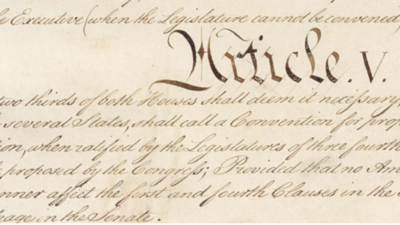 Executive (when the Legislature cannot be convened
Article. V.
two thirds of both Houses shall deem it necessary
several States, shall call a Convention for prop
ion, when ratified by the Legislatures of three fourth
proposed by the Congress; Provided that no Am
nner affect the first and fourth Clauses in the
age in the Senate.